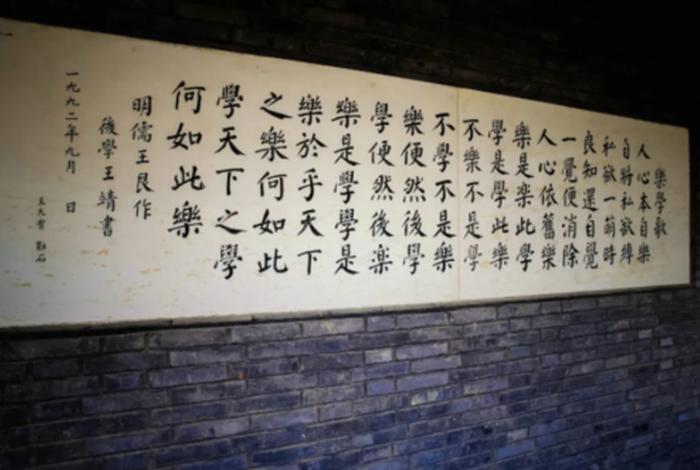 樂學歌
人心本自樂
自將私欲縛
私欲一萌時
良知還自覺
一覺便消除
人心依舊樂
樂是楽此學
學是學此樂
不樂不是學
不學不是樂
樂便然後學
學便然後楽
樂是學學是
樂於乎天下
之樂何如此
學天下之學
何如此樂
明儒王艮作
後學王靖書
一九九二年九月 日
勒石